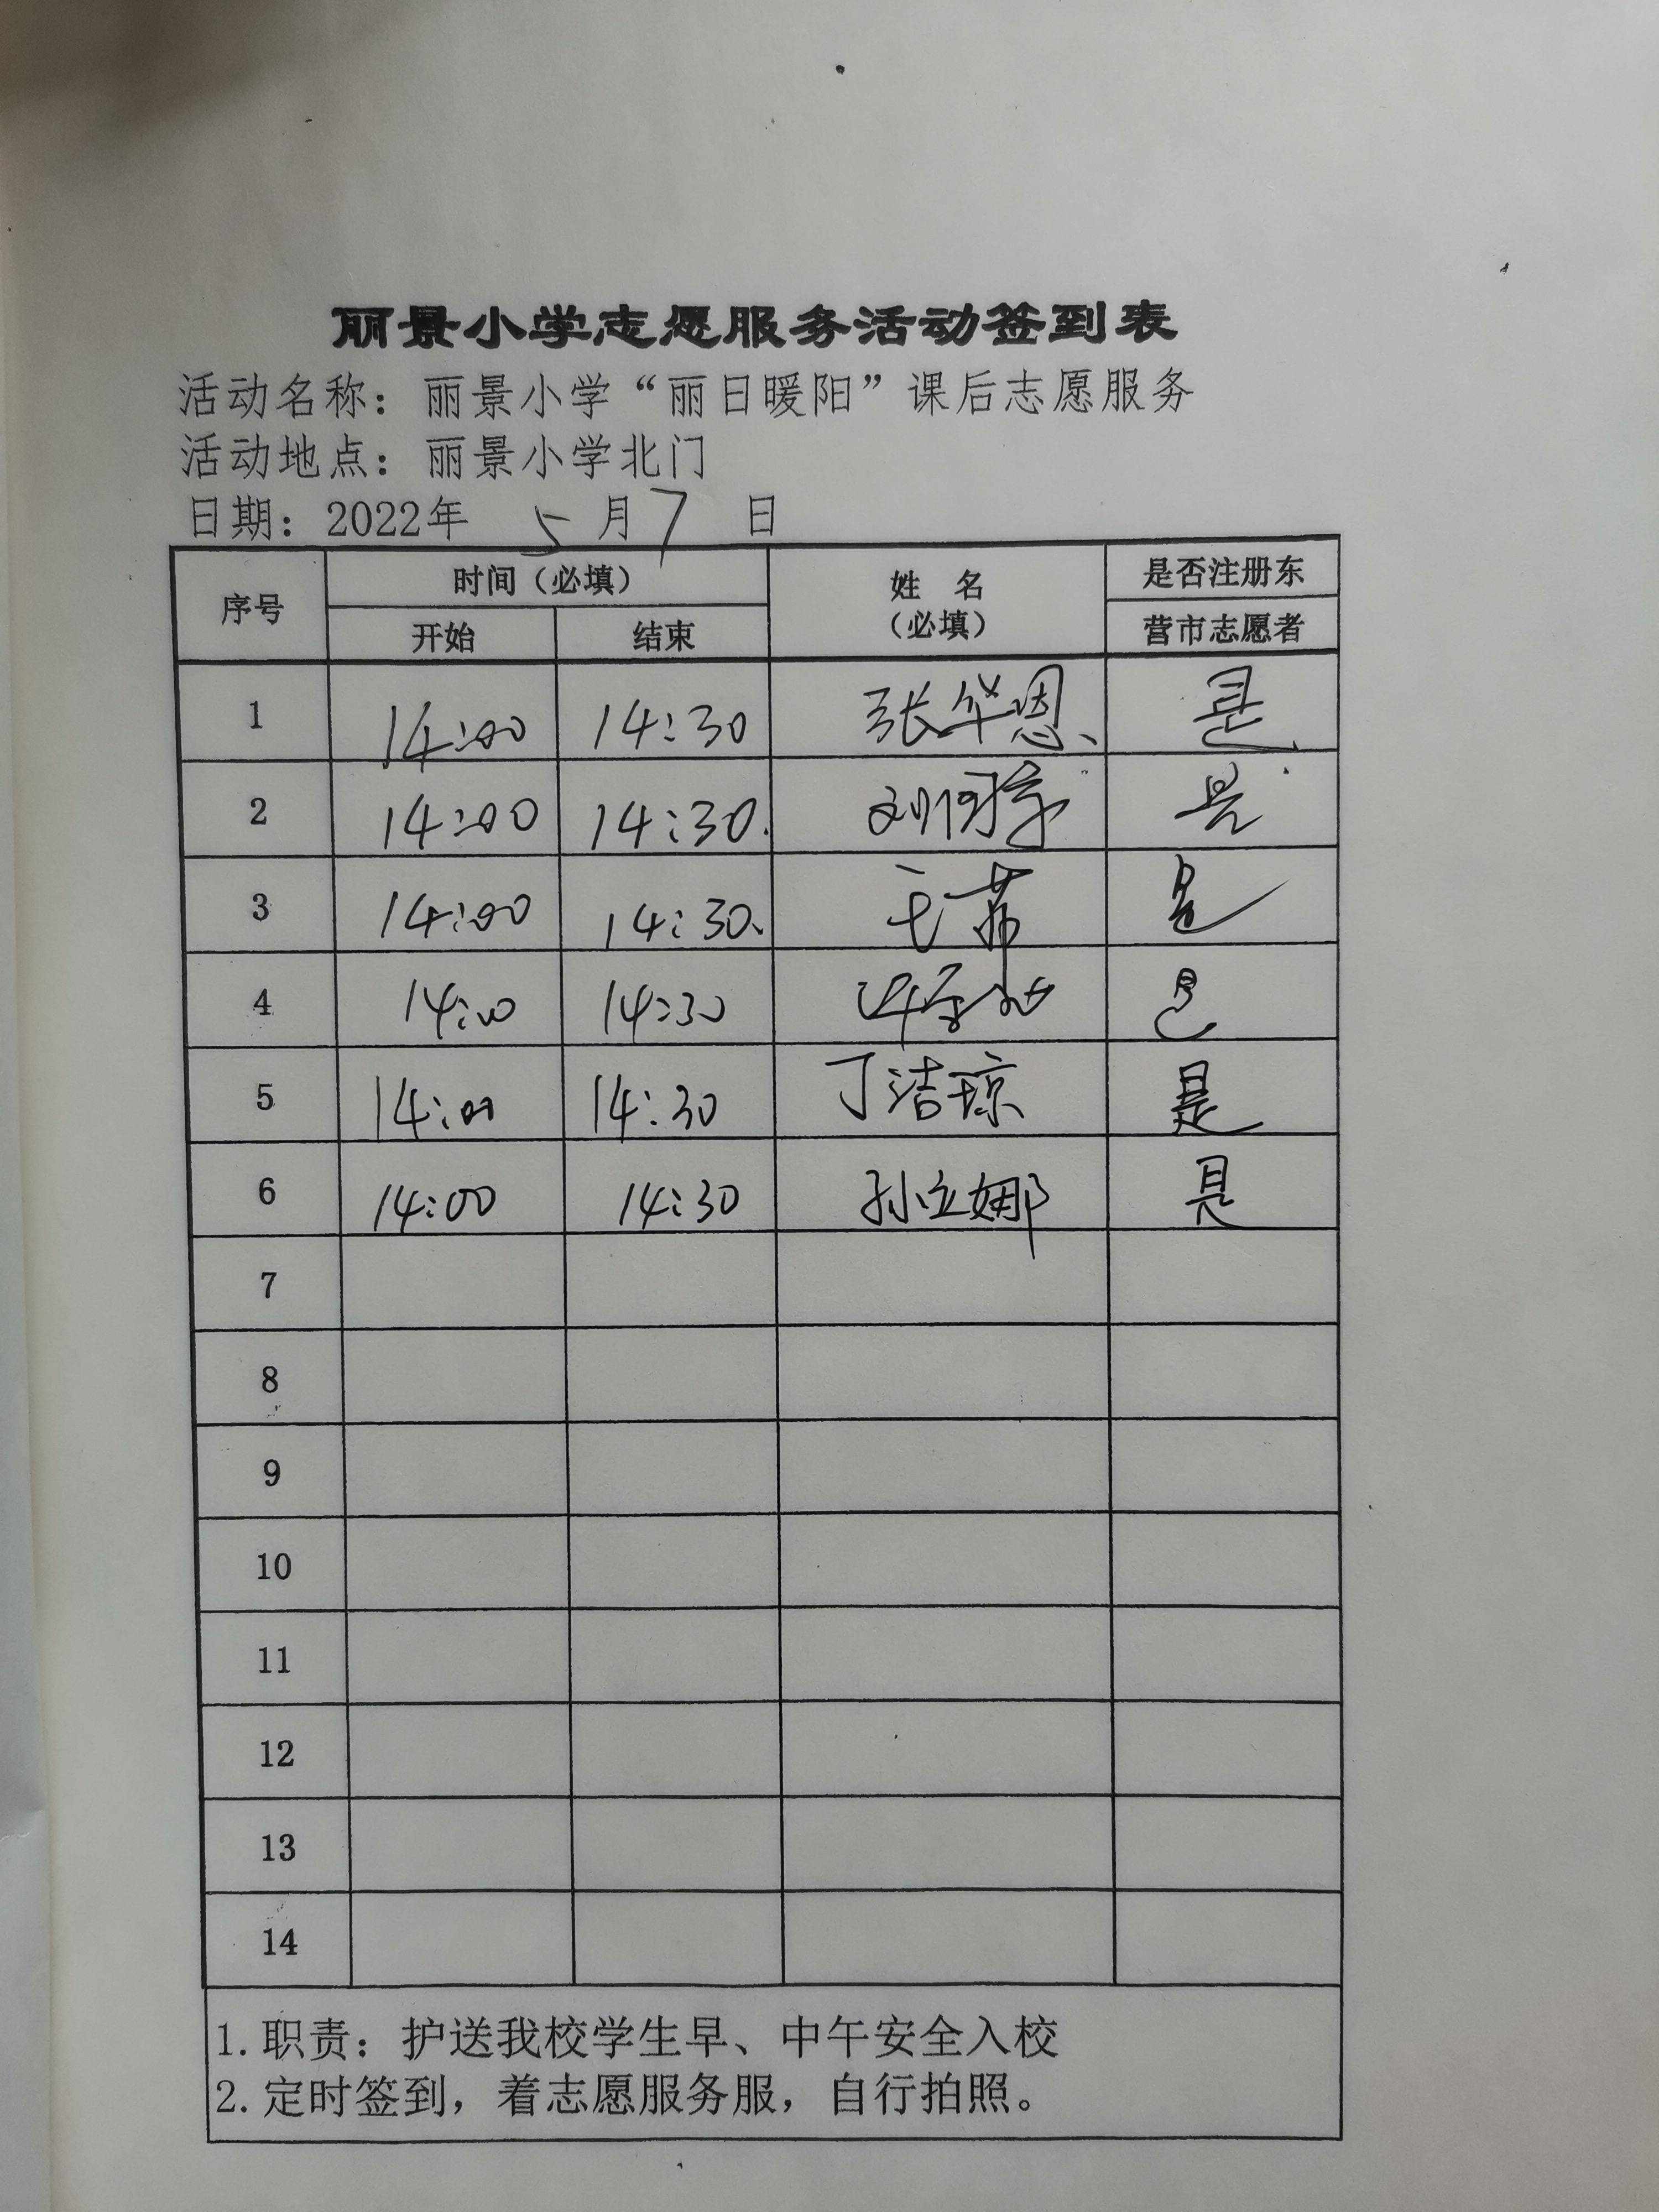 丽景小学志愿服务活动签到表
活动名称：丽景小学“丽日暖阳”课后志愿服务
活动地点：丽景小学北门
日期：2022年 5 月 7 日
序号 时间（必填） 姓 名 （必填） 是否注册东营市志愿者
开始 结束
1 14:00 14:30 张华恩 是
2 14:00 14:30 刘 是
3 14:00 14:30 是
4 14:00 14:30 是
5 14:00 14:30 丁洁琼 是
6 14:00 14:30 孙立娜 是
7
8
9
10
11
12
13
14
1.职责：护送我校学生早、中午安全入校
2.定时签到，着志愿服务服，自行拍照。